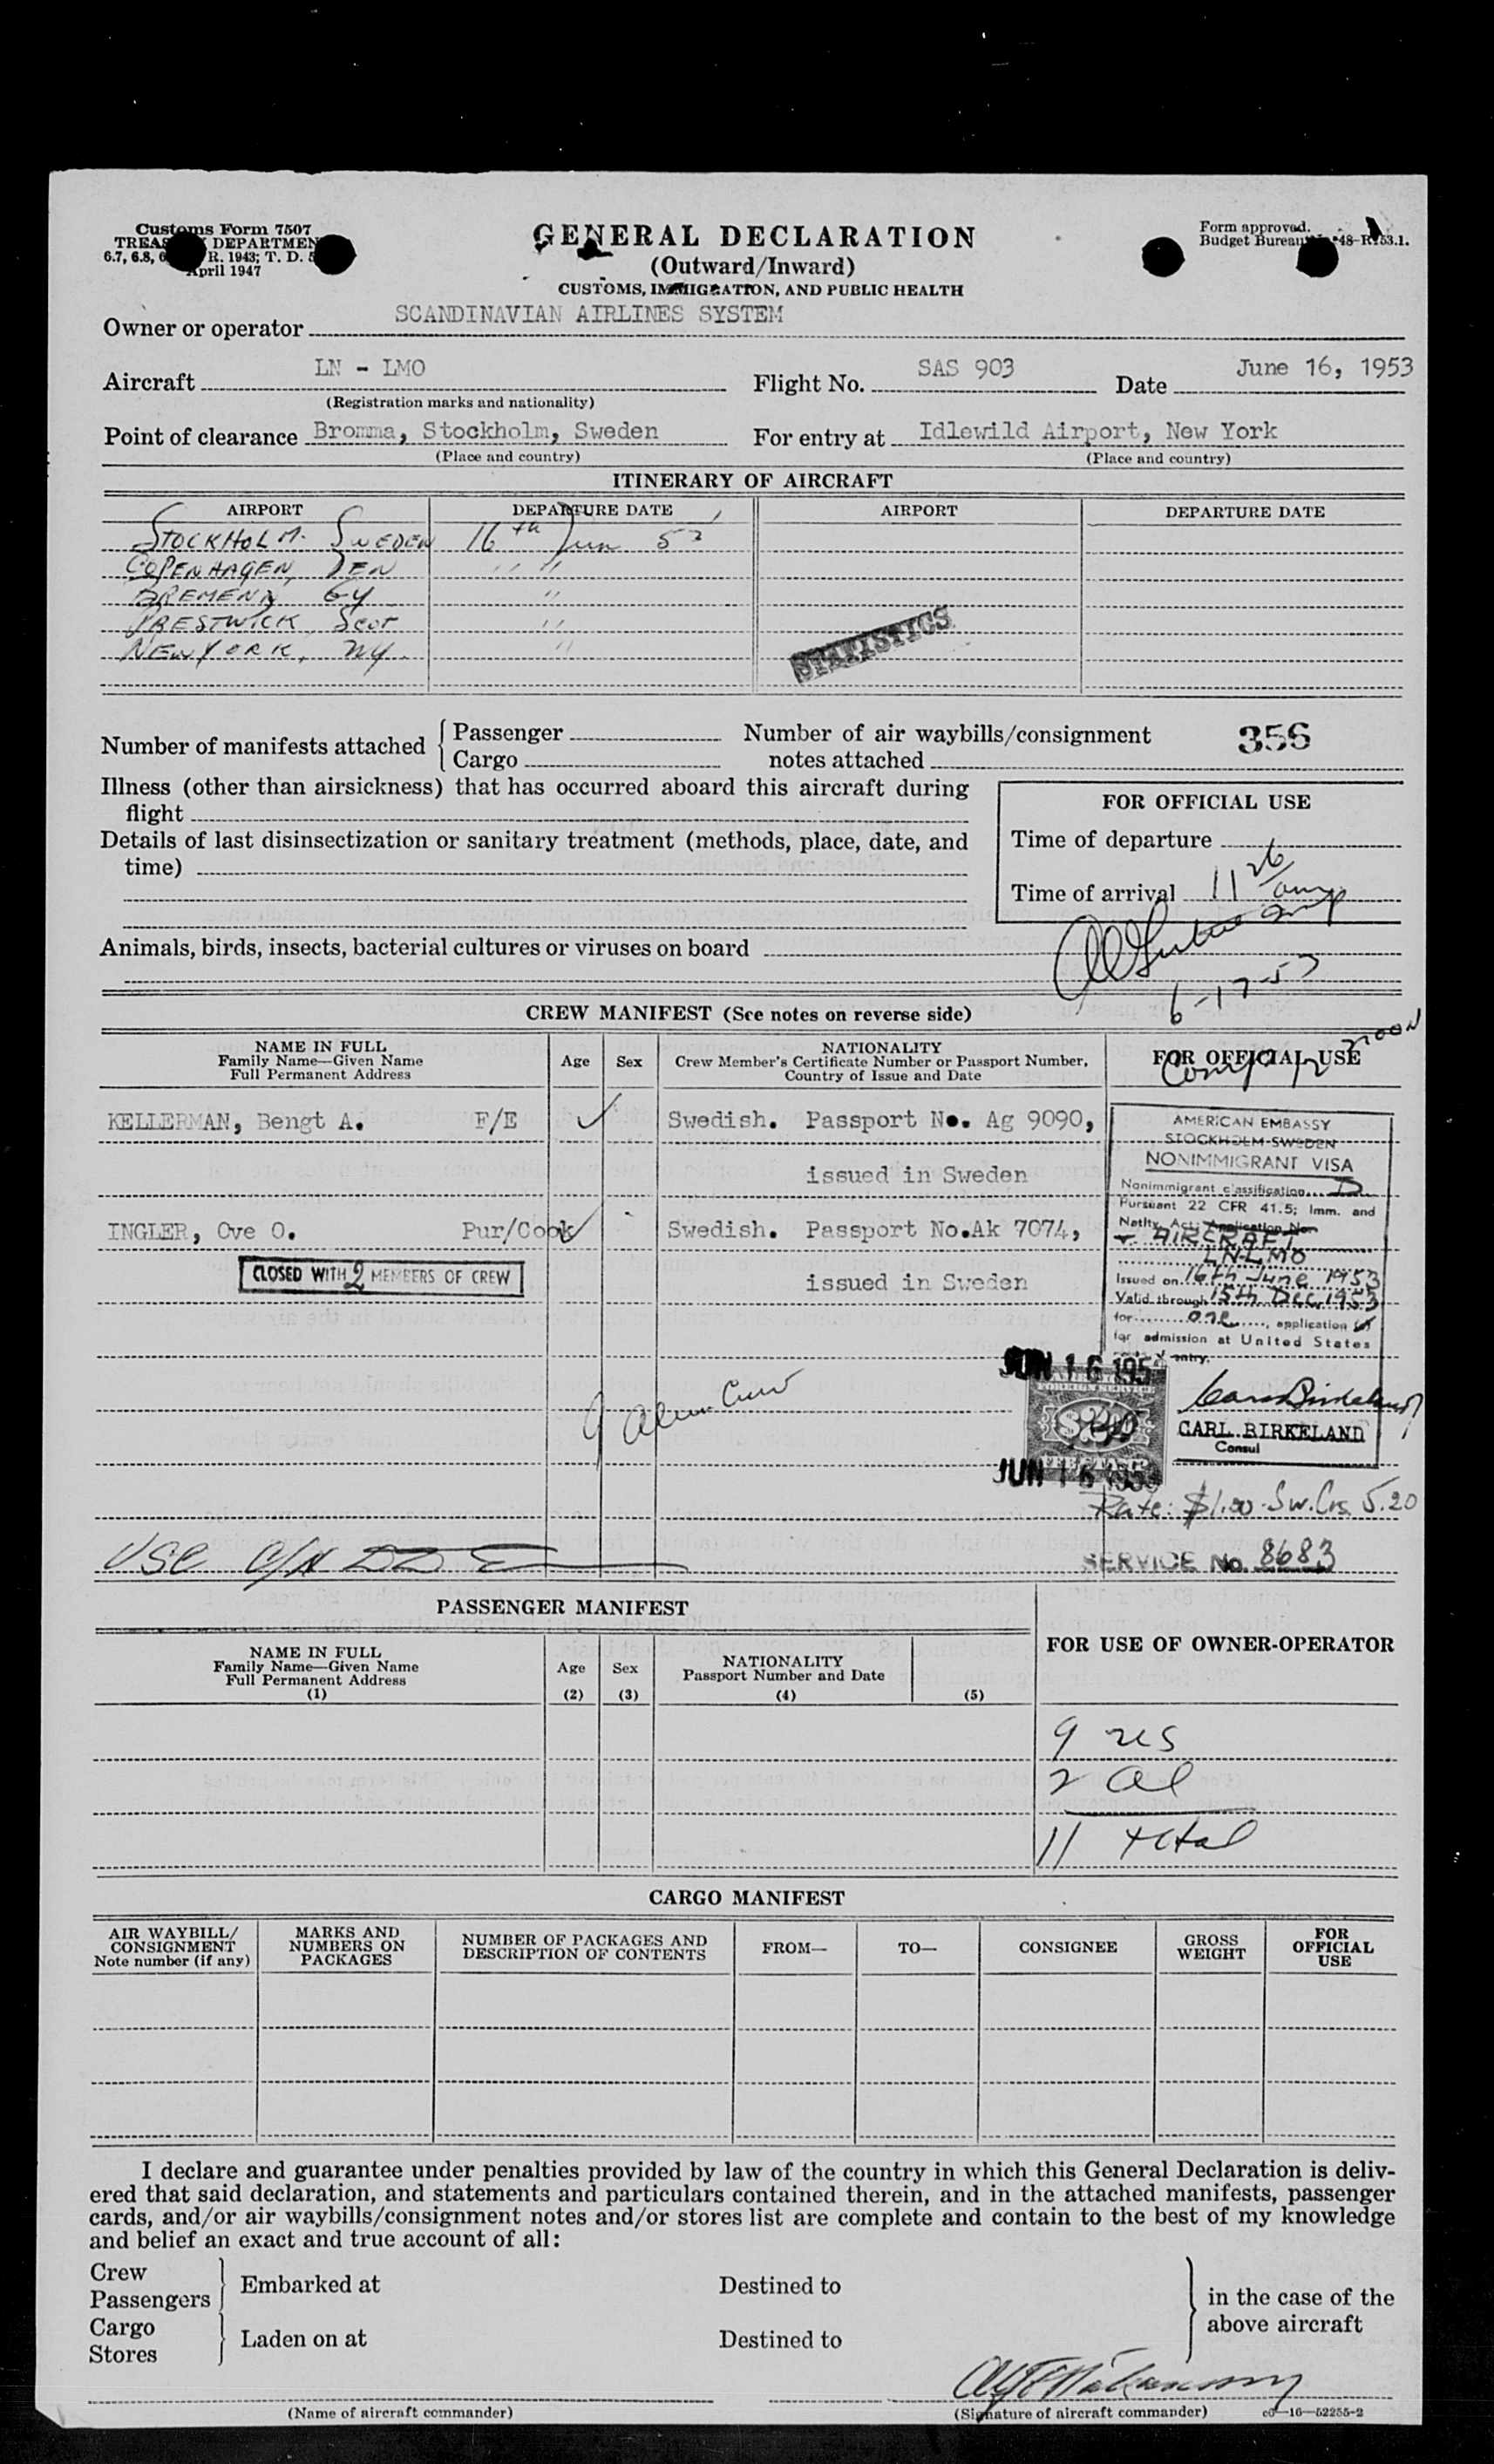 Customs Form 7507
TREAS DEPARTMEN
6.7, 6.8, 6 R. 1943; T. D. 5
April 1947
GENERAL DECLARATION
(Outward/Inward)
CUSTOMS, IMMIGRATION, AND PUBLIC HEALTH
Form approved.
Budget Bureau 48-R 53.1.
Owner or operator SCANDINAVIAN AIRLINES SYSTEM
Aircraft LN - LMO Flight No. SAS 903 Date June 16, 1953
(Registration marks and nationality)
Point of clearance Bromma, Stockholm, Sweden For entry at Idlewild Airport, New York
(Place and country) (Place and country)
ITINERARY OF AIRCRAFT
AIRPORT DEPARTURE DATE AIRPORT DEPARTURE DATE
STOCKHOLM. SWEDEN 16th Jun 53
COPENHAGEN, DEN " " "
BREMEN, GY "
PRESTWICK, Scot "
NEW YORK, NY. "
STATISTICS
Number of manifests attached { Passenger Number of air waybills/consignment 356
Cargo notes attached
Illness (other than airsickness) that has occurred aboard this aircraft during
flight
Details of last disinsectization or sanitary treatment (methods, place, date, and
time)
FOR OFFICIAL USE
Time of departure
Time of arrival 11 26 am
Animals, birds, insects, bacterial cultures or viruses on board
6-17-53
CREW MANIFEST (See notes on reverse side)
NAME IN FULL
Family Name—Given Name
Full Permanent Address
Age Sex
NATIONALITY
Crew Member's Certificate Number or Passport Number,
Country of Issue and Date
FOR OFFICIAL USE
KELLERMAN, Bengt A. F/E Swedish. Passport No. Ag 9090,
issued in Sweden
INGLER, Ove O. Pur/Cook Swedish. Passport No.Ak 7074,
issued in Sweden
CLOSED WITH 2 MEMBERS OF CREW
AMERICAN EMBASSY
STOCKHOLM SWEDEN
NONIMMIGRANT VISA
Nonimmigrant classification D
Pursuant 22 CFR 41.5; Imm. and
Natlty. Act; Application No.
AIRCRAFT
LN-LMO
Issued on 16th June 1953
Valid through 15th Dec. 1953
for one, application
for admission at United States
entry.
JUN 16 195
9 Alien Crew
CARL BIRKELAND
Consul
JUN 16 195
Rate: $1.00 - Sw.Crs 5.20
USC
SERVICE No. 8683
PASSENGER MANIFEST
NAME IN FULL
Family Name—Given Name
Full Permanent Address
(1)
Age
(2)
Sex
(3)
NATIONALITY
Passport Number and Date
(4) (5)
FOR USE OF OWNER-OPERATOR
9 us
2 al
11 total
CARGO MANIFEST
AIR WAYBILL/
CONSIGNMENT
Note number (if any)
MARKS AND
NUMBERS ON
PACKAGES
NUMBER OF PACKAGES AND
DESCRIPTION OF CONTENTS
FROM—
TO—
CONSIGNEE
GROSS
WEIGHT
FOR
OFFICIAL
USE
I declare and guarantee under penalties provided by law of the country in which this General Declaration is deliv-
ered that said declaration, and statements and particulars contained therein, and in the attached manifests, passenger
cards, and/or air waybills/consignment notes and/or stores list are complete and contain to the best of my knowledge
and belief an exact and true account of all:
Crew
Passengers } Embarked at Destined to
Cargo
Stores } Laden on at Destined to
in the case of the
above aircraft
(Name of aircraft commander) (Signature of aircraft commander) c6—16—52255-2